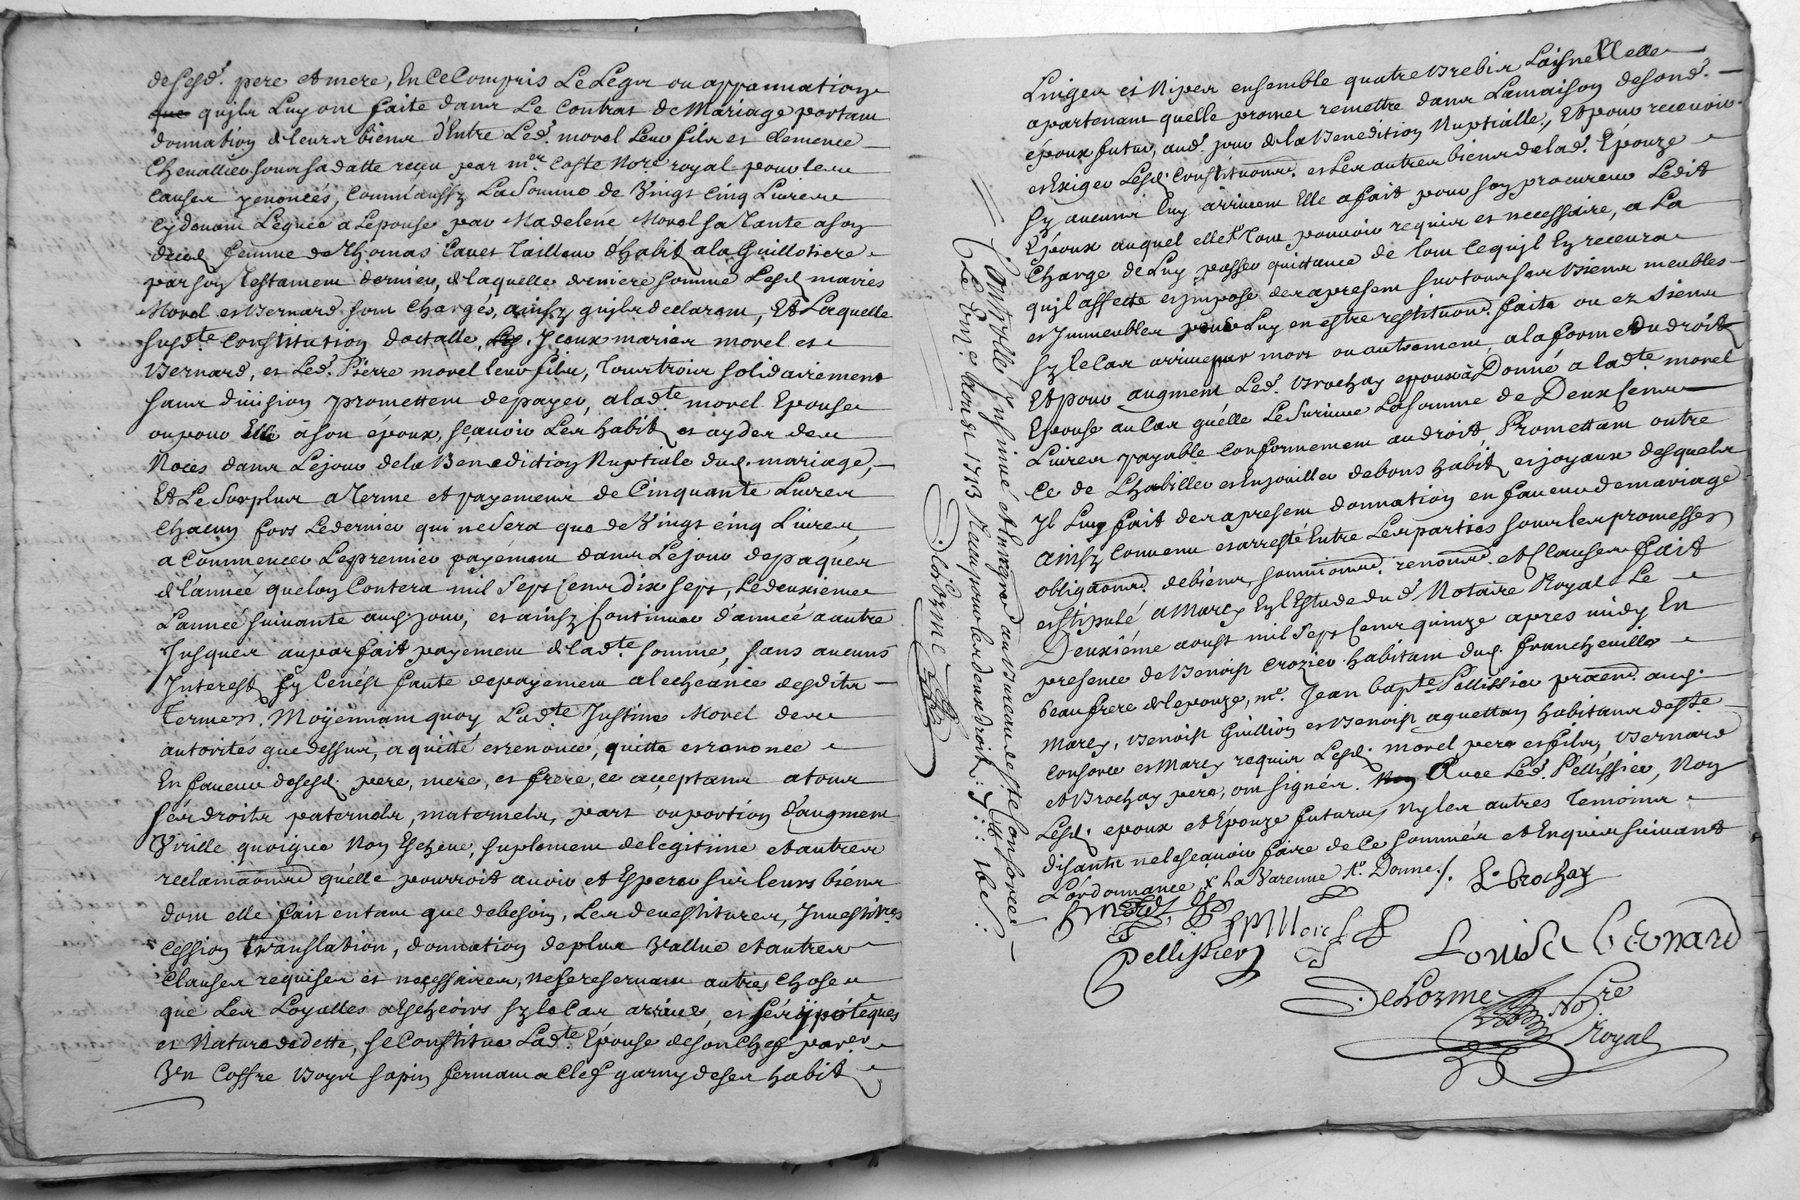 desesd. pere et mere, En Ce Compris Le Legat ou appannation
que quils Luy ont faite dans Le Contrat de Mariage portant
donnation de leurs biens d'Entre Led. morel leur fils et Clemence
Chevallier soubs sa datte receu par me Coste Nore royal pour les
Causes y enoncés, Comm'aussy La Somme de Vingt Cinq Livres
Cydevant Leguée a Lepouse par Madelene Morel sa Tante a son
deces femme de Thomas Canet Tailleur d'habits a la Guillotiere
par son Testament dernier, de laquelle derniere somme Lesd. mariés
Morel et Bernard sont Chargés, ainsy quils declarent, Et Laquelle
susdte Constitution doctalle, Iceux mariés morel et
Bernard, et Led. Pierre morel leur fils, Tous trois solidairement
sans division promettent de payer, a ladte morel Epouse
ou pour Elle a son époux, sçavoir Les habits et aydes de
Noces dans Le jour de la Benediction Nuptiale dud. mariage,
Et Le Surplus a Terme et payements de Cinquante Livres
Chacun fors Le dernier qui ne sera que de Vingt cinq Livres,
a commencer Le premier payement dans Le jour de paques
de l'année que lon Contera mil Sept Cens dix sept, Le deuxieme
L'année suivante aud. jour, et ainsy Continuer d'année a autre
Jusques au parfait payement de ladte somme, sans aucuns
Interests sy Cenest faute de payement a lecheance desdits
Termes. Moÿennant quoy Ladte Justine Morel de
autorités que dessus, a quitté et renoncé, quitte et renonce
En faveur desesd. pere, mere, et frere, ce acceptants a tous
ses droits paternels, maternels, part ou portion d'augment
Virille quoique Non Escheue, suplement de legitime et autres
reclamaonnd quelle pourroit avoir et Esperer sur leurs biens
dont elle fait entant que de besoin, Les devestitures, Investitres
cession translation, donnation de plus vallue et autres
Clauses requises et necessaires, ne se reservant autres choses
que Les Loyalles Escheoirs sy le Cas arrive, et Ses ÿpoteques
et Nature de dette, se Constitue Ladte Epouse de son Chef
Un Coffre Boys sapin fermant a Clef garny de ses habits
Linges et Nipes ensemble quatre Brebis Laisnelles
apartenant quelle promet remettre dans La maison de sond.
epoux futur, aud. jour de la Benedition Nuptialle, Et pour recevoir
et Exiger Lesd. Constituonnd. et Les autres biens de lad. Epouze
sy aucuns Luy arrivent Elle a fait pour son procureur Ledit
Epoux auquel elle Tout pouvoir requis et necessaire, a La
Charge de Luy passer quittance de Tout Ce quil En recevra
quil affecte et impose des apresent sur tous ses biens meubles
et Immeubles pour Luy en estre restituond. faite ou ez siens
sy le Cas arrive par mort ou autrement, a la forme du droit
Et pour augment Led. Brochay epoux a Donné a ladte morel
Epouse au Cas quelle Le survive La somme de Deux Cens
Livres payable Conformement au droit Promettant outre
Ce de Lhabiller et Enjouiller de bons habits et joyaux desquels
Il Luy fait des apresent donnation en faveur de mariage
Ainsy Convenu et arresté Entre Les parties sous Les promesses
obligaonnd. de biens, soumiond. renond. et Clauses fait
et stipulé a Marcy En l'Estude du d. Notaire Royal Le
Deuxiéme aoust mil Sept Cens quinze apres midy En
presence de Benoist Crozier habitant dud. francheville
beau frere de lepouze, me. Jean bapte Pellissier praend. aud.
Marcy, Benoist Guillion et Benoist aquettan habitans de Ste
Consorce et Marcy requis Lesd. morel pere et fils, Bernard
et Brochay pere, ont signés. Avec Led. Pellissier, Non
Lesd. epoux et Epouze futurs, Ny les autres Temoins
disants ne le sçavoir faire de Ce sommés et Enquis suivant
L'ordonnance
L. Brochay
P Morel
Pellissier
Louise bernard
Delorme Nore
Royal
Controllé Insinué et Enregred au Bureau de Ste Consorce
Le 6me aoust 1715 Receu pour les deux droits
Delorme